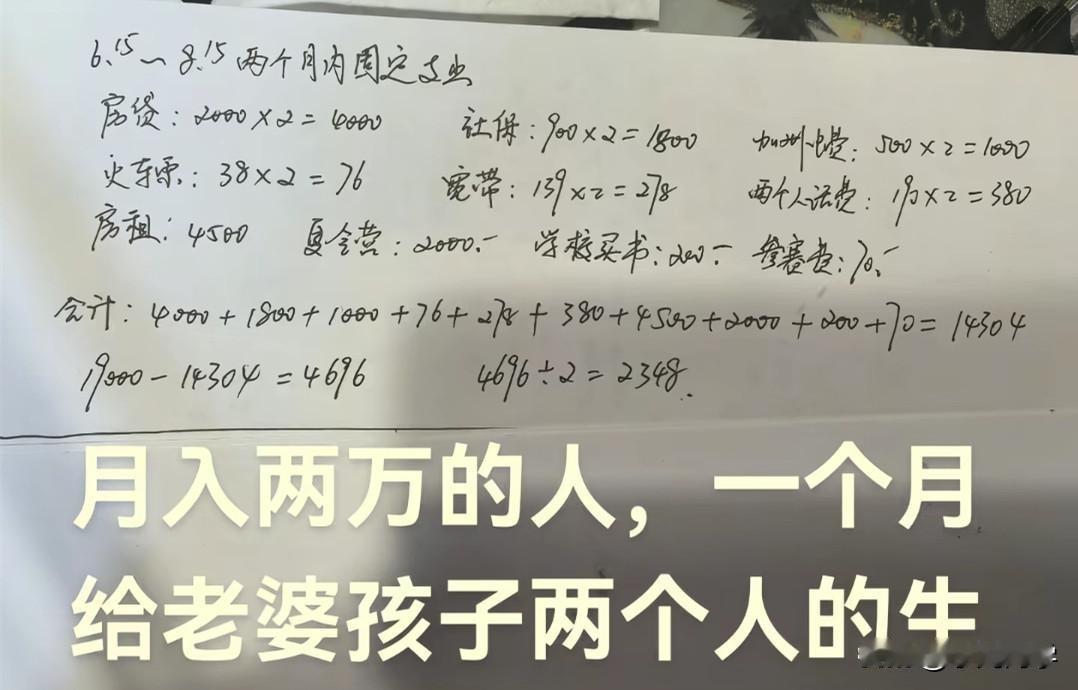 6.15～8.15 两个月内固定支出
房贷：2000×2=4000 社保：900×2=1800 费：500×2=1000
火车票：38×2=76 宽带：139×2=278 两个人话费：190×2=380
房租：4500 夏令营：2000.- 学校买书：200.- 参赛费：70.-
合计：4000+1800+1000+76+278+380+4500+2000+200+70=14304
19000-14304=4696 4696÷2=2348.
月入两万的人，一个月
给老婆孩子两个人的生